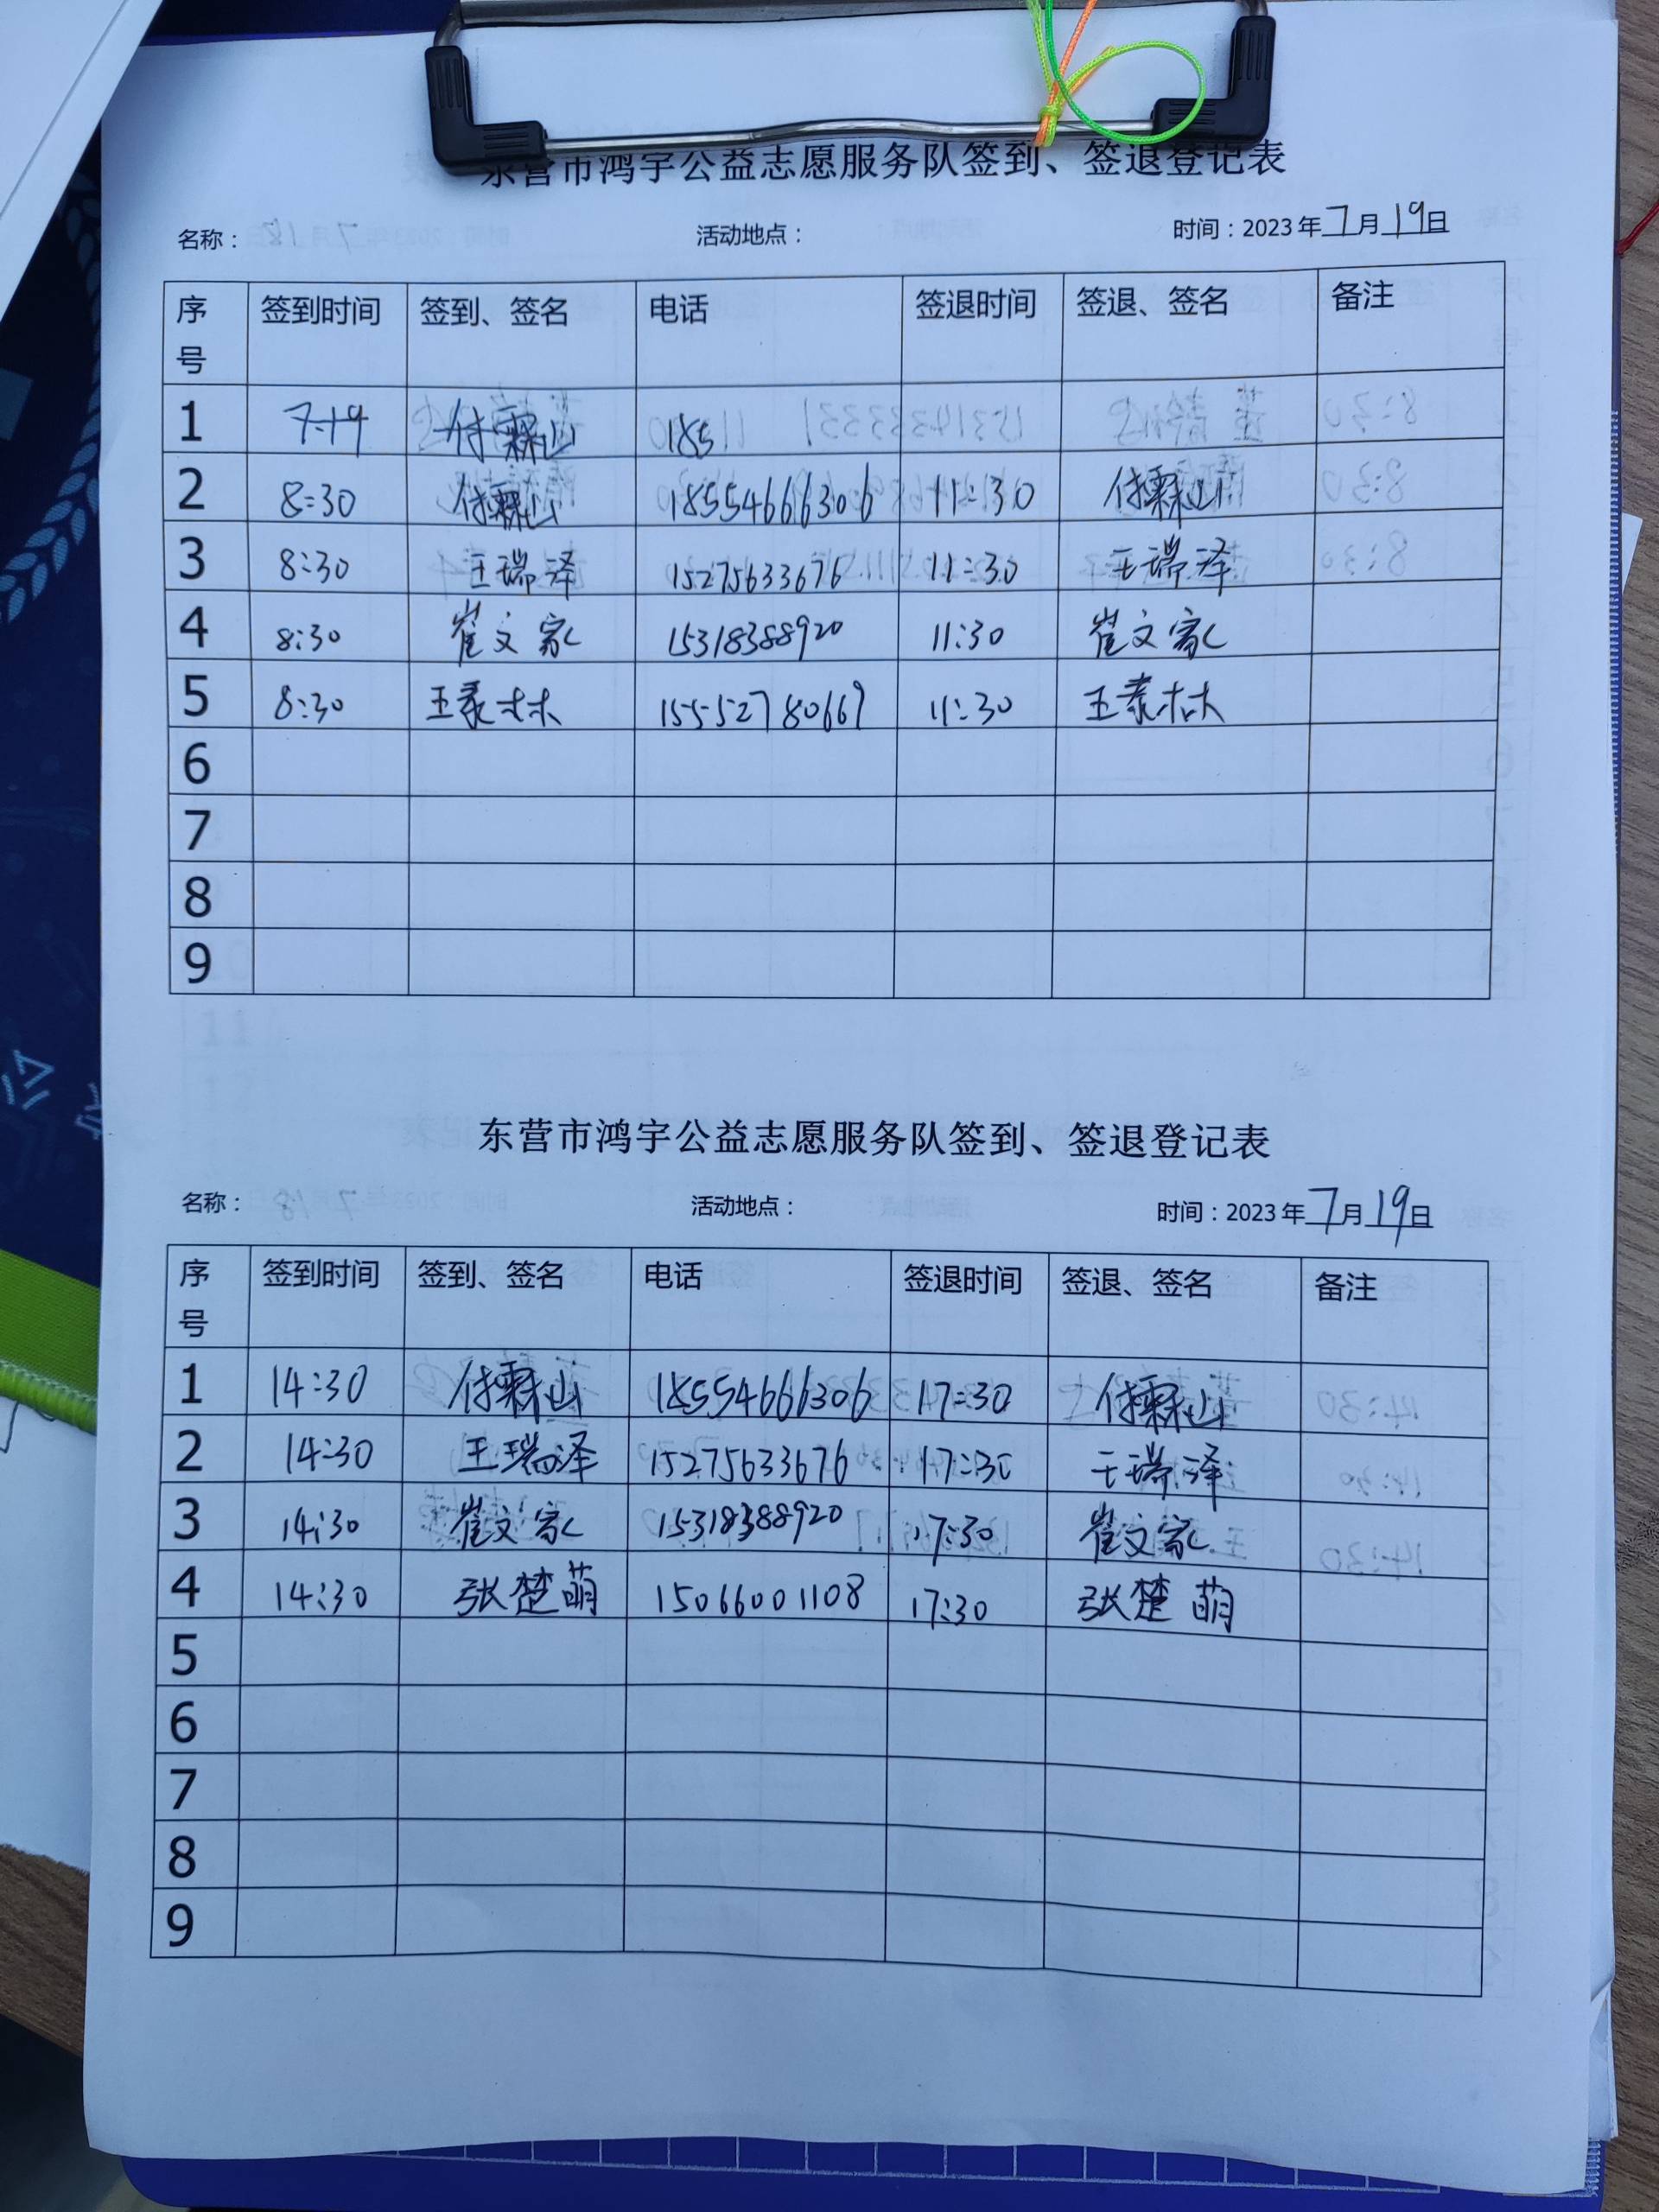 东营市鸿宇公益志愿服务队签到、签退登记表
名称： 活动地点： 时间：2023年7月19日
序号 签到时间 签到、签名 电话 签退时间 签退、签名 备注
1 7.19 付霖山 185
2 8:30 付霖山 18554666306 11:30 付霖山
3 8:30 王瑞泽 15275633676 11:30 王瑞泽
4 8:30 崔文家 15318388920 11:30 崔文家
5 8:30 王 15552780669 11:30 王
6
7
8
9
东营市鸿宇公益志愿服务队签到、签退登记表
名称： 活动地点： 时间：2023年7月19日
序号 签到时间 签到、签名 电话 签退时间 签退、签名 备注
1 14:30 付霖山 18554666306 17:30 付霖山
2 14:30 王瑞泽 15275633676 17:30 王瑞泽
3 14:30 崔文家 15318388920 17:30 崔文家
4 14:30 张楚萌 15066001108 17:30 张楚萌
5
6
7
8
9